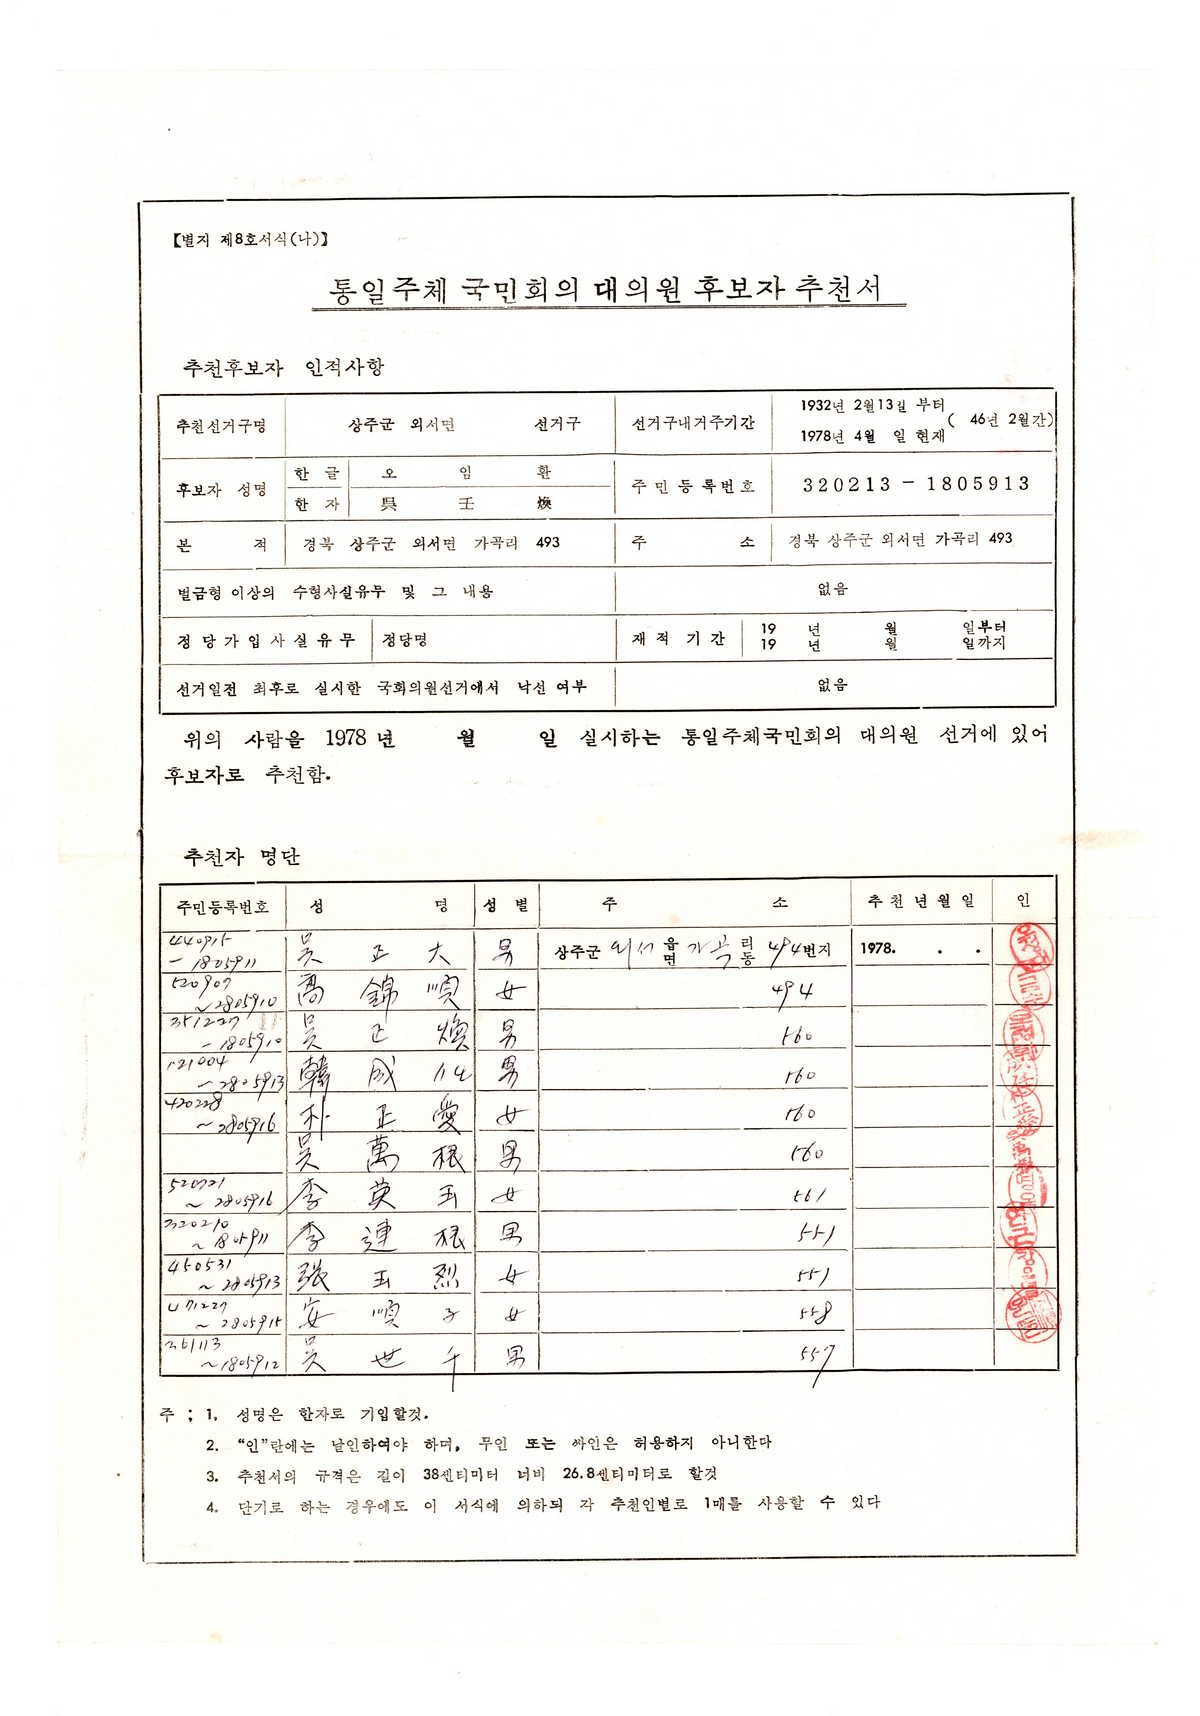 【별지 제8호서식(나)】
통일주체 국민회의 대의원 후보자 추천서
추천후보자 인적사항
추천선거구명 상주군 외서면 선거구 선거구내거주기간 1932년 2월13일 부터 1978년 4월 일 현재 ( 46년 2월간)
후보자 성명 한글 오 임 환 주민등록번호 320213 - 1805913
한자 吳 壬 煥
본 적 경북 상주군 외서면 가곡리 493 주 소 경북 상주군 외서면 가곡리 493
벌금형 이상의 수형사실유무 및 그 내용 없음
정당가입사실유무 정당명 재적기간 19 년 월 일부터
19 년 월 일까지
선거일전 최후로 실시한 국회의원선거에서 낙선 여부 없음
위의 사람을 1978년 월 일 실시하는 통일주체국민회의 대의원 선거에 있어
후보자로 추천함.
추천자 명단
주민등록번호 성 명 성별 주 소 추천년월일 인
440915 - 1805911 吳 正 大 男 상주군 외서 읍면 가곡 리동 494번지 1978. . .
520907 ~2805910 高 錦 順 女 494
351227 - 1805910 吳 正 煥 男 560
121004 - 2805913 韓 成 男 560
420228 ~ 2805916 朴 正 愛 女 560
吳 萬 根 男 560
520721 ~ 2805916 李 英 玉 女 561
320210 ~ 1805911 李 連 根 男 551
450531 ~ 2805913 張 玉 烈 女 551
471227 ~ 2805915 安 順 子 女 558
351113 ~1805912 吳 世 千 男 557
주 ; 1. 성명은 한자로 기입할것.
2. “인”란에는 날인하여야 하며, 무인 또는 싸인은 허용하지 아니한다
3. 추천서의 규격은 길이 38센티미터 너비 26.8센티미터로 할것
4. 단기로 하는 경우에도 이 서식에 의하되 각 추천인별로 1매를 사용할 수 있다